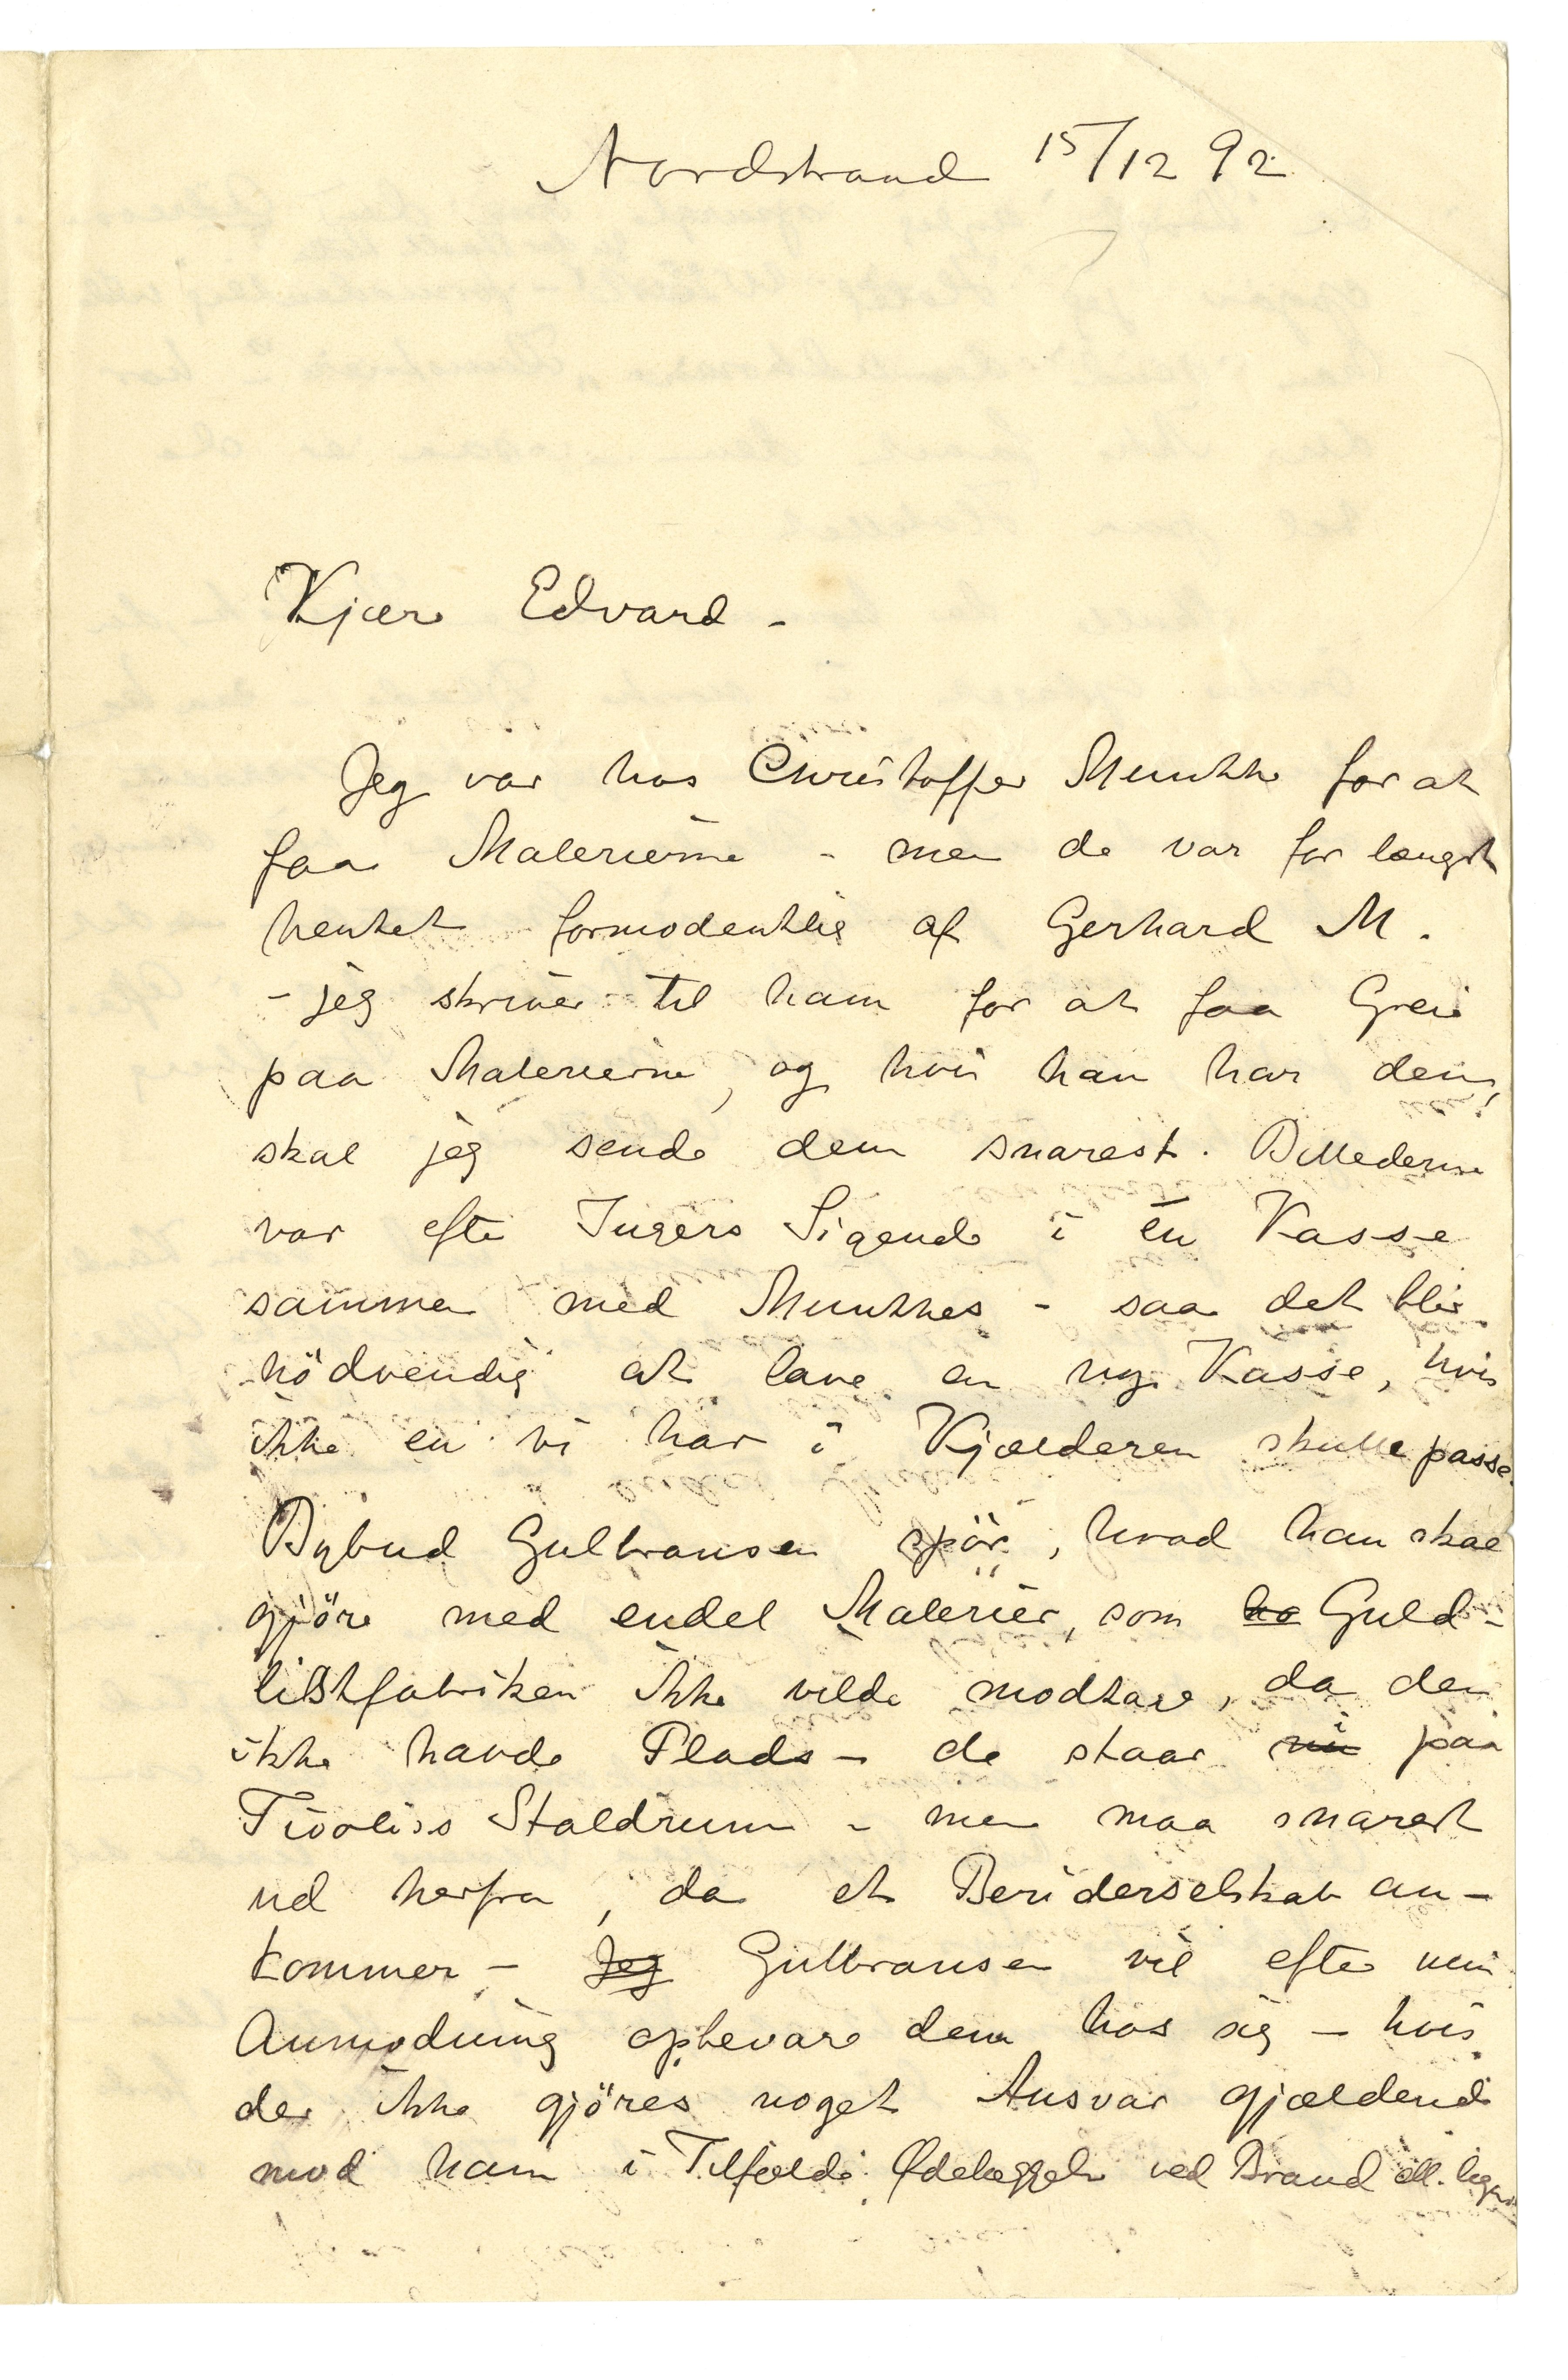 Nordstrand 15/12 92
Kjære Edvard –
Jeg var hos Christoffer Munthe for at
faa Malerierne – men de var for længst
hentet formodentlig af Gerhard M.
– jeg skriver til ham for at faa Greie
paa Malerierne, og hvis han har dem,
skal jeg sende dem snarest. Billederne
var efter Ingers Sigende i èn Kasse
sammen med Munthes – saa det blir
nödvendig at lave en ny Kasse, hvis
ikke en vi har i Kjælderen skulle passe.
Bybud Gulbransen spör, hvad han skal
gjöre med endel Malerier, som ha Guld-
listfabriken ikke vilde modtage, da den
ikke havde Plads – de staar nu i paa
Tivolis Staldrum – men maa snarest
ud herfra, da et Beriderselskab an-
kommer – Jeg Gulbransen vil efter min
Anmodning opbevare dem hos sig – hvis
der ikke gjöres noget Ansvar gjældende
mod ham i Tilfælde Ødelæggelse ved Brand ell. lign